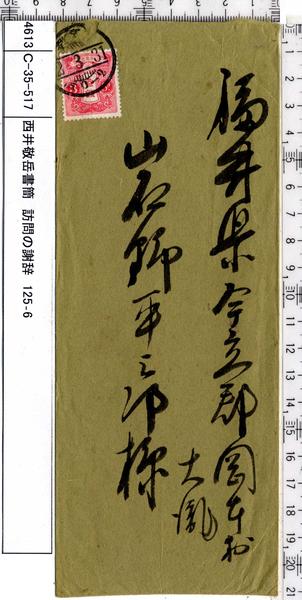 4613 C-35-517 西井敬岳書簡 訪問の謝辞 125-6
3.31
福井県今立郡岡本村
大瀧
岩野平三郎様